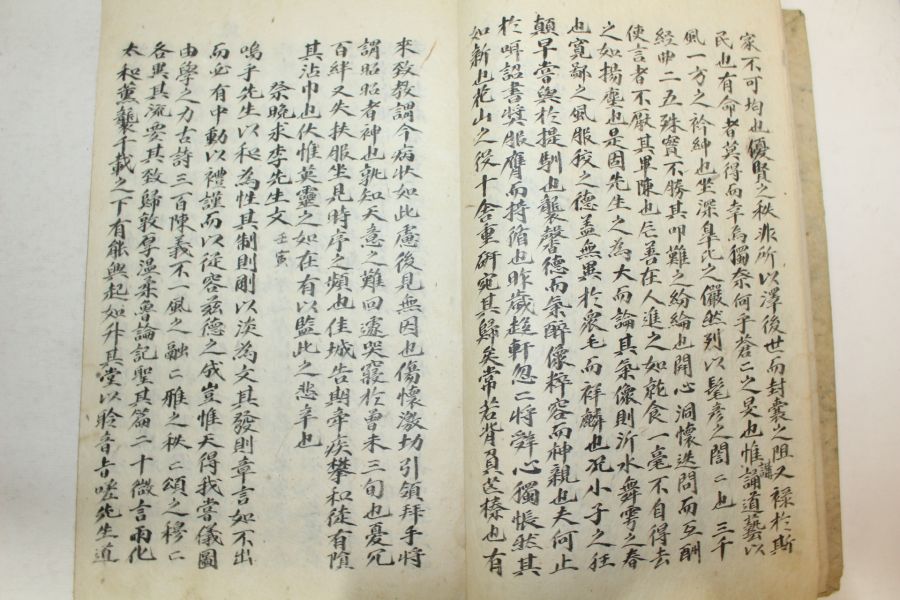 家不可均也優賢之秩非所以澤後世而封囊之阻又祿於斯
民也有命者莫得而幸焉獨奈何乎蒼二之旻也惟講誦道藝以
風一方之衿紳也坐深皐氏之儼然列以髦彦之誾二也三千
經曲二五殊實不勝其叩難之紛綸也開心洞懷迭問而互酬
使言者不厭其畢陳也片善在人進之如就食一毫不自得去
之如揚塵也是因先生之為大而論其氣像則沂水舞雩之春
也寛鄙之風服狡之德盖無異於裘毛而祥麟也况小子之狂
顚早嘗與於提馴也襲馨德而氣醉像粹容而神親也夫何止
於明詔書奬服膺而持循也昨歲趍軒忽二將舜心獨悵然其
如新也花山之役十舍重硏宛其歸矣常若背負芒榛也有
來致敎謂今病狀如此慮後見無因也傷懷激切引領拜手將
謂昭昭者神也孰知天意之難回遽哭寢於曾未三旬也憂冗
百絆又失扶服坐見時序之頻也佳城告期牽疾攀和徒有隕
其沾巾也伏惟英靈之如在有以監此之悲辛也
祭晩求李先生文 壬寅
嗚乎先生以和為性其制則剛以淡為文其發則章言如不出
而必有中動以禮謹而以從容玆德之成豈惟天得我嘗儀圖
由學之力古詩三百陳義不一風之融二雅之秩二頌之穆二
各異其流要其致歸敦厚温柔魯論記聖其篇二十微言雨化
太和薰襲千載之下有能興起如升其堂以聆音旨嗟先生道